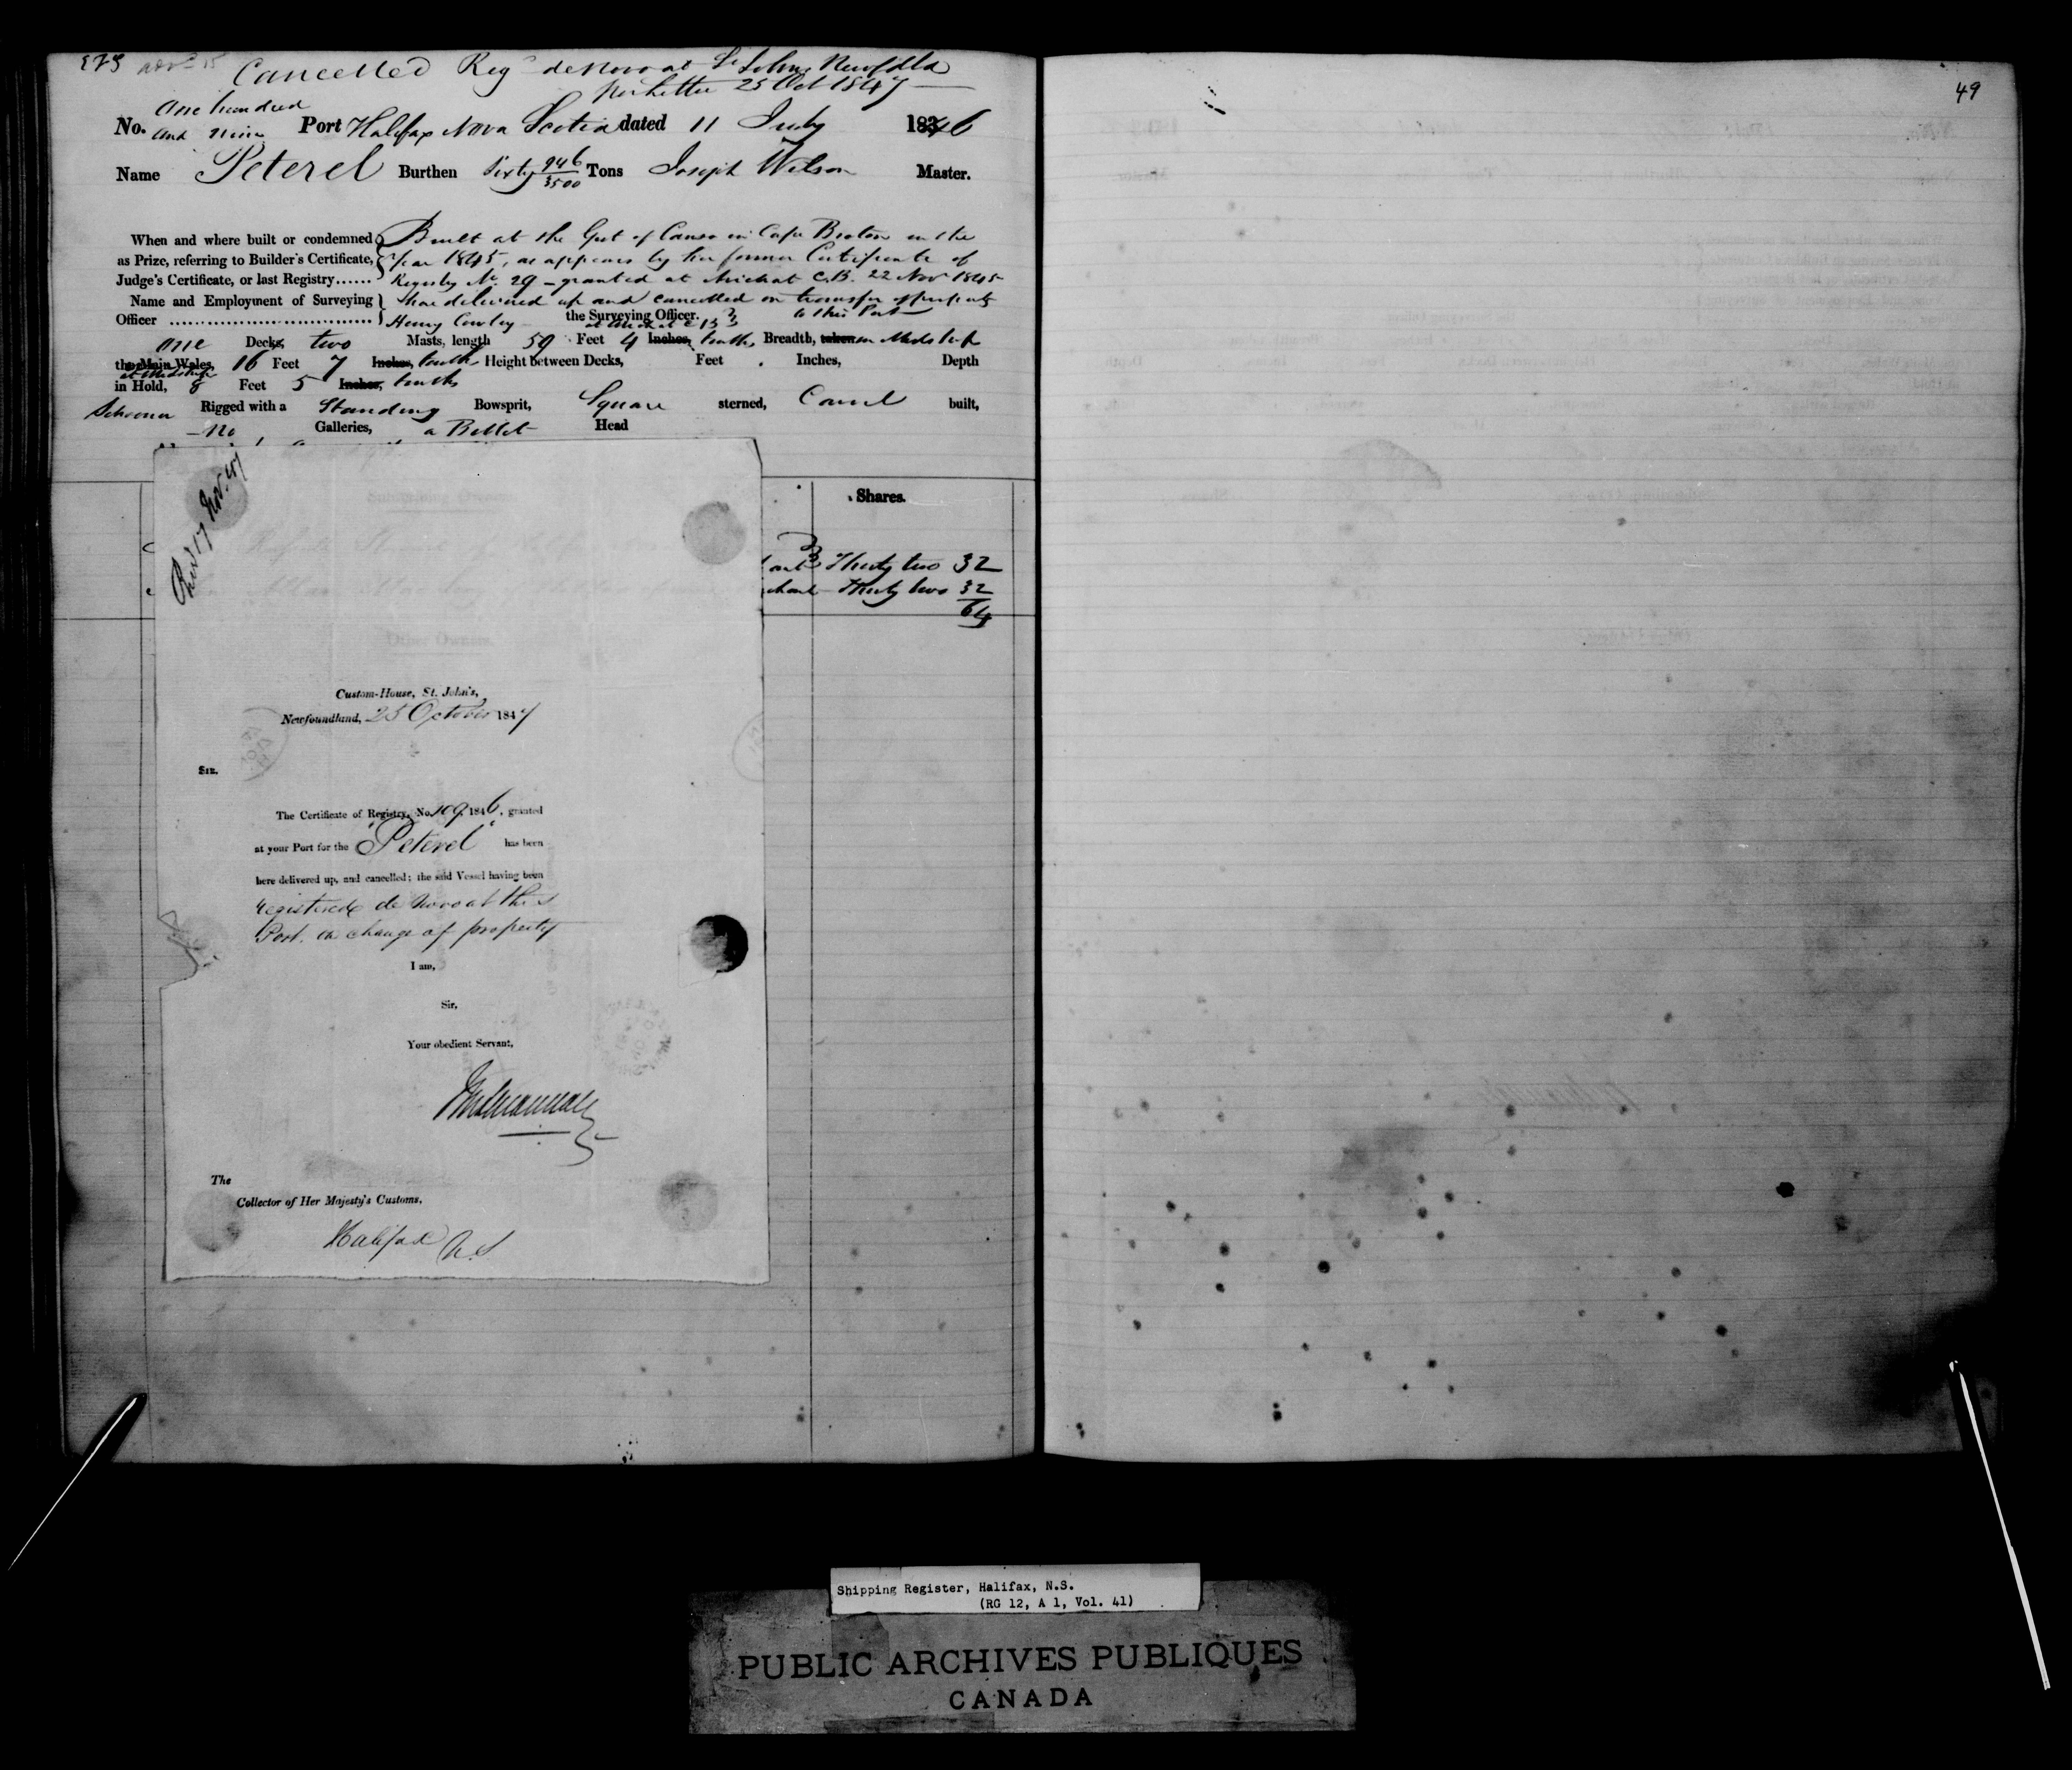 Cancelled Reg^d de Novo at St Johns Newfdld
per letter 25 Oct 1847
No. One hundred and nine Port Halifax Nova Scotia dated 11 July 1846
Name Peterel Burthen Sixty 946/3500 Tons Joseph Wilson Master.
When and where built or condemned Built at the Gut of Canso in Cape Breton in the
as Prize, referring to Builder's Certificate, Year 1845, as appears by her former Certificate of
Judge's Certificate, or last Registry...... Registry No. 29 - granted at Arichat C.B. 22 Nov 1845
Name and Employment of Surveying here delivered up and cancelled on transfer of property
Officer Henry Cowley the Surveying Officer. to this Port
at Arichat C B
One Decks, two Masts, length 59 Feet 4 Inches, tenths, Breadth, taken in Midships
the Main Wales, 16 Feet 7 Inches, tenths Height between Decks, Feet Inches, Depth
at Midships
in Hold, 8 Feet 5 Inches, tenths
Schooner Rigged with a Standing Bowsprit, Square sterned, Carvel built,
- no Galleries, a Billet Head
Shares.
Thirty two 32
Thirty two 32
64
Rec'd 17 Nov. 47
Subscribing Owners.
Other Owners.
Custom-House, St. John's,
Newfoundland, 25 October 1847
Sir.
The Certificate of Registry, No. 109, 1846, granted
at your Port for the "Peterel" has been
here delivered up, and cancelled; the said Vessel having been
registered de Novo at this
Port. on change of property
I am,
Sir,
Your obedient Servant,
The
Collector of Her Majesty's Customs.
Halifax N.S
49
Shipping Register, Halifax, N.S.
(RG 12, A 1, Vol. 41)
PUBLIC ARCHIVES PUBLIQUES
CANADA